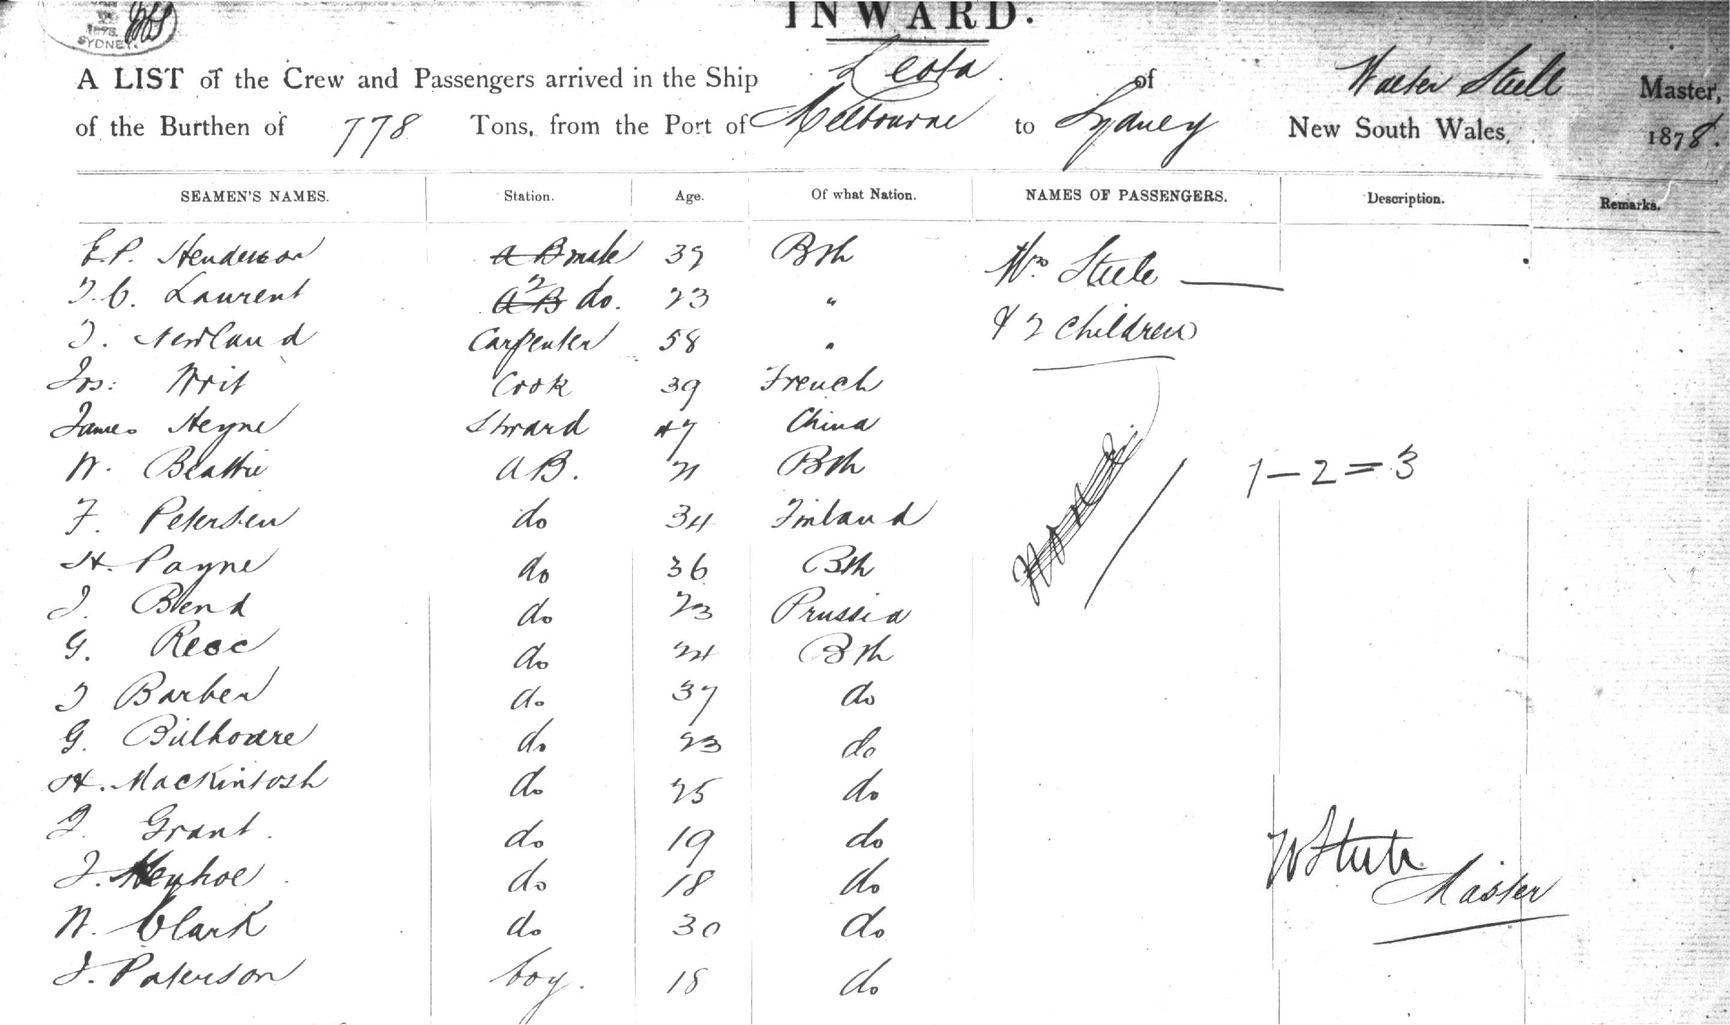 1878
SYDNEY
INWARD.
A LIST of the Crew and Passengers arrived in the Ship Leota of Walter Steele Master,
of the Burthen of 778 Tons, from the Port of Melbourne to Sydney New South Wales, 1878.
SEAMEN'S NAMES. Station. Age. Of what Nation. NAMES OF PASSENGERS. Description. Remarks.
E.P. Henderson A B mate 39 Bsh Wm Steele
T.C. Laurent A B 2 do. 23 "
& 2 children
J. Newland Carpenter 58 "
Jos: Writ Cook 39 French
James Heyne Steward 47 China
W. Beattie A B. 21 Bsh
1 - 2 = 3
F. Petersen do 34 Finland
H. Payne do 36 Bsh
J. Bend do 23 Prussia
G. do 24 Bsh
J Barber do 37 do
G. do 23 do
H. Mackintosh do 25 do
J. Grant. do 19 do
W Steele
J. Heyhoe do 18 do
Master
W. Clark do 30 do
J. Paterson boy. 18 do